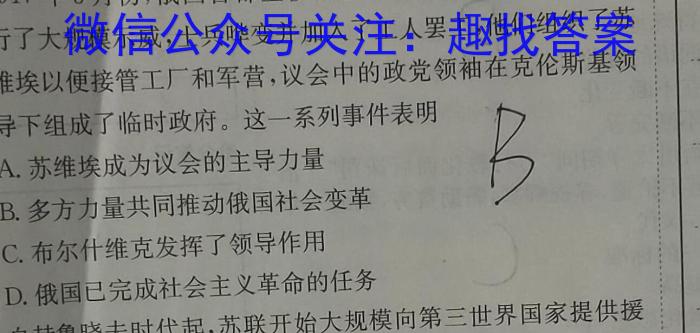 微信公众号关注：趣找答案
行了大规模示威，士兵哗变并加入了工人罢工，他们组织了苏
维埃以便接管工厂和军营，议会中的政党领袖在克伦斯基领
导下组成了临时政府。这一系列事件表明
A. 苏维埃成为议会的主导力量
B. 多方力量共同推动俄国社会变革
C. 布尔什维克发挥了领导作用
D. 俄国已完成社会主义革命的任务
自赫鲁晓夫时代起，苏联开始大规模向第三世界国家提供援
B